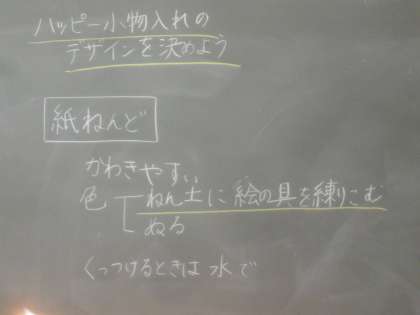 ハッピー小物入れの
デザインを決めよう
紙ねんど
かわきやすい
色 ねん土に絵の具を練りこむ
ぬる
くっつけるときは水で